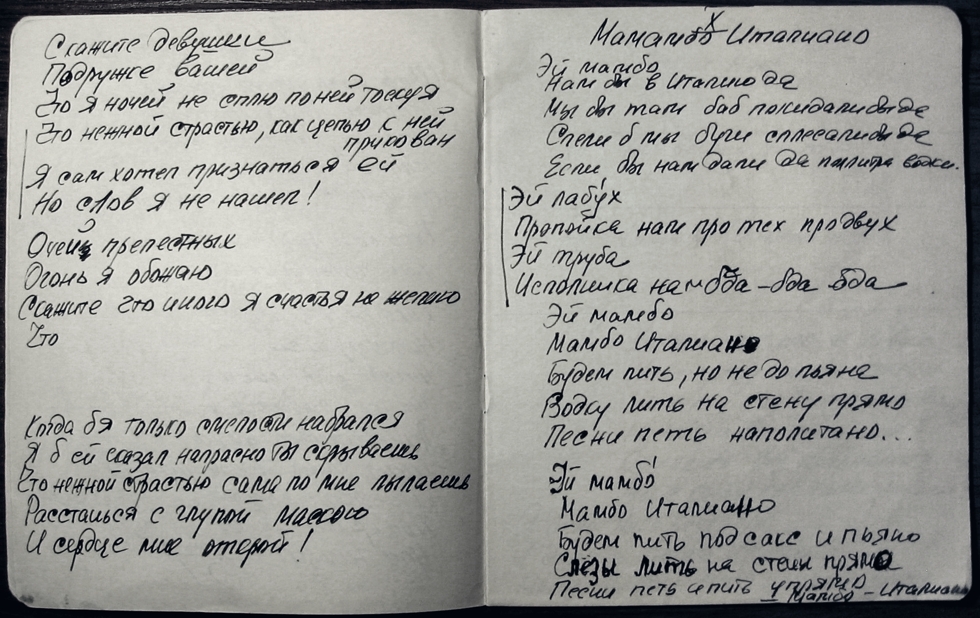 Скажите девушки
Подружке вашей
Что я ночей не сплю по ней тоскуя
Что нежной страстью, как цепью к ней
прикован
Я сам хотел признаться ей
Но слов я не нашел!
Очей прелестных
Огонь я обожаю
Скажите что иного я счастья не желаю
Что
Когда б я только смелости набрался
Я б ей сказал напрасно ты скрываешь
Что нежной страстью сама по мне пылаешь
Расстанься с глупой маскою
И сердце мне открой!
Мамамбо Италиано
Эй мамбо
Нам бы в Италию да
Мы бы там баб покидали бы да
Спели б мы буги сплесали бы да
Если бы нам дали да поллитра водки.
Эй лабух
Пропойка нам про тех про двух
Эй труба
Исполника нам бда-бда бда
Эй мамбо
Мамбо Италиано
Будем пить, но не до пьяна
Водку лить на стену прямо
Песни петь наполитано...
Эй мамбо
Мамбо Италиано
Будем пить под сакс и пьяно
Слёзы лить на стены прямо
Песни петь и пить упрямо
Мамбо - Италиано